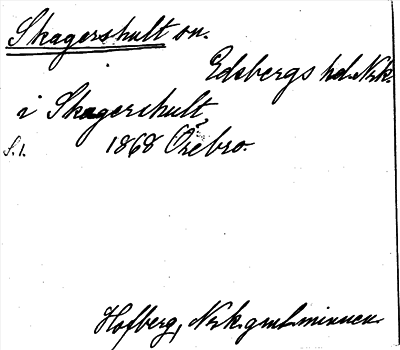 Skagershult sn.
Edsbergs hd. Nrk.
i Skagershult,
S. 1. 1868 Örebro.
Hofberg, Nrk. gml. minnen.